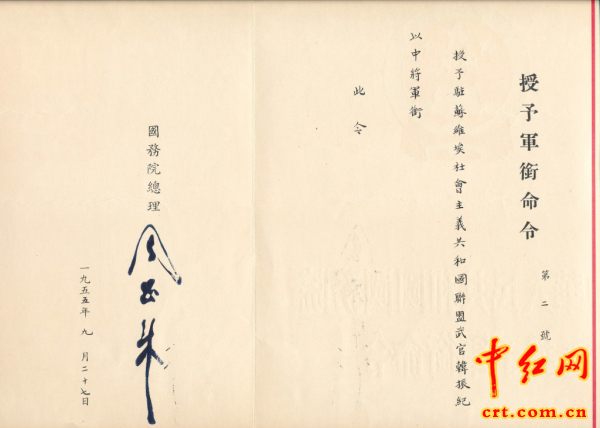 授予軍銜命令
第二號
授予駐蘇維埃社會主義共和國聯盟武官韓振紀
以中將軍銜
此令
國務院總理
周恩来
一九五五年九月二十七日
中红网
crt.com.cn